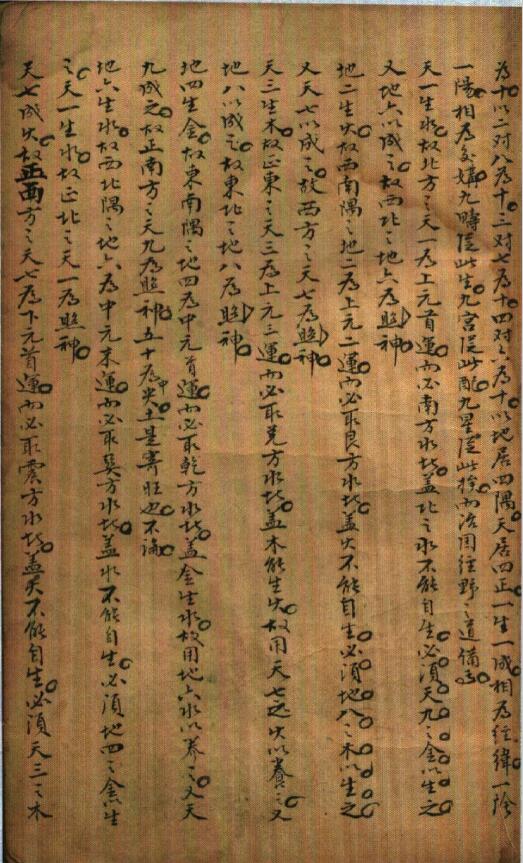 為十以二对八為十三对七為十四对六為十以地居四隅天居四正一生一成相為经緯一陰
一陽相為交媾九疇從此生九宮從此配九星從此推而治国经野之道備焉
天一生水故北方之天一為上元首運而必南方水地蓋北之水不能自生必須天九之金以生之
又地六以成之故西北之地六為照神
地二生火故西南隅之地二為上元二運而必取艮方水地蓋火不能自生必須地八之木以生之
又天七以成之故西方之天七為照神
天三生木故正東之天三為上元三運而必取兌方水地蓋木能生火故用天七之火以養之又
地八以成之故東北之地八為照神
地四生金故東南隅之地四為中元首運而必取乾方水地蓋金生水故用地六水以養之又天
九成之故正南方之天九為照神五十為中央土是寄旺也不論
地六生水故西北隅之地六為中元末運而必取巽方水地蓋水不能自生必須地四之金以生
之天一生水故正北之天一為照神
天七成火故正西方之天七為下元首運而必取震方水地蓋火不能自生必須天三之木